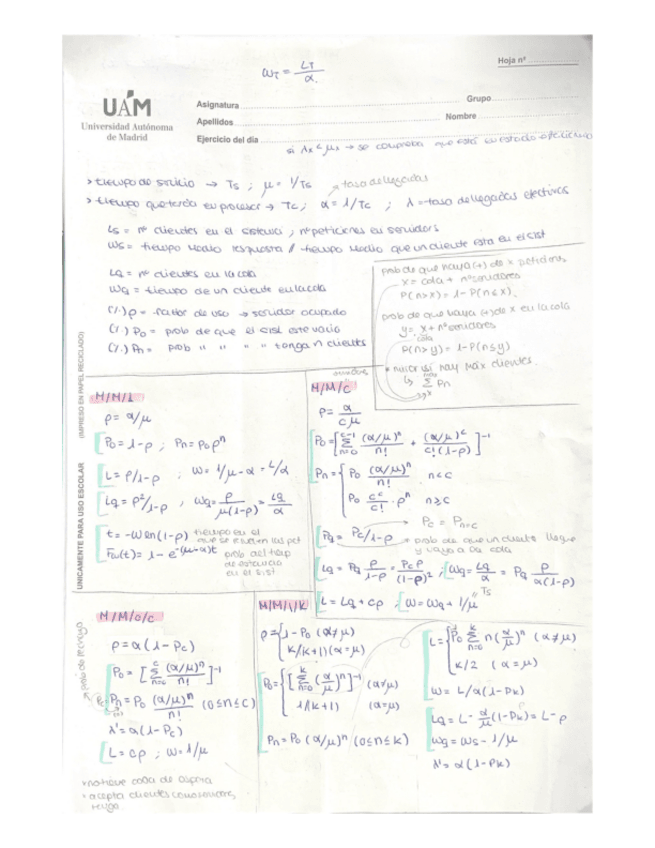 ω_T = L_T / α
Hoja nº
UAM
Universidad Autónoma
de Madrid
Asignatura
Grupo
Apellidos
Nombre
Ejercicio del día
si λx < μx → se comprueba que está en estado
> tiempo de servicio → Ts ; μ = 1/Ts → tasa de llegadas
> tiempo que tarda en procesar → Tc ; α = 1/Tc ; λ = tasa de llegadas efectivas
Ls = nº clientes en el sistema ; nº peticiones en servidors
Ws = tiempo medio respuesta // tiempo medio que un cliente esta en el sist
Lq = nº clientes en la cola
Wq = tiempo de un cliente en la cola
(%) ρ = factor de uso → servidor ocupado
(%) P0 = prob de que el sist este vacio
(%) Pn = prob " " " " tenga n clientes
prob de que haya (+) de x peticions
x = cola + nº servidores
P(n>x) = 1 - P(n≤x)
prob de que vaya (+) de x en la cola
y = x + nº servidores
cola
P(n>y) = 1 - P(n≤y)
* mirar si hay max clientes.
Σ Pn
(IMPRESO EN PAPEL RECICLADO)
UNICAMENTE PARA USO ESCOLAR
M/M/1
ρ = α/μ
P0 = 1-ρ ; Pn = P0 ρ^n
L = ρ/1-ρ ; W = 1/μ-α = L/α
Lq = ρ²/1-ρ , Wq = ρ/μ(1-ρ) = Lq/α
t = -W ln(1-ρ) tiempo en el
que se resuelven las pet
Fw(t) = 1 - e^-(μ-α)t prob del tiemp
de estancia
en el sist
M/M/c
ρ = α/cμ
P0 = [Σ_{n=0}^{c-1} (α/μ)^n/n! + (α/μ)^c/c!(1-ρ)]^-1
Pn = { P0 (α/μ)^n/n! n<c
P0 c^c/c! · ρ^n n≥c
Pc = Pn=c
Pq = Pc/1-ρ → prob de que un cliente llegue
y vaya a la cola
Lq = Pq ρ/1-ρ = Pc ρ/(1-ρ)² ; Wq = Lq/α = Pq ρ/α(1-ρ)
L = Lq + cρ ; W = Wq + 1/μ Ts
M/M/0/c
prob de rechazo
ρ = α(1-Pc)
P0 = [Σ_{n=0}^{c} (α/μ)^n/n!]^-1
Pc = Pn = P0 (α/μ)^n/n! (0≤n≤c)
λ' = α(1-Pc)
L = cρ ; W = 1/μ
• no tiene cola de espera
• acepta clientes como servidores,
M/M/1/K
ρ = { 1-P0 (α≠μ)
K/K+1) (α=μ)
P0 = { [Σ_{n=0}^{k} (α/μ)^n]^-1 (α≠μ)
1/(K+1) (α=μ)
Pn = P0 (α/μ)^n (0≤n≤k)
L = { P0 Σ_{n=0}^{k} n(α/μ)^n (α≠μ)
K/2 (α=μ)
W = L/α(1-PK)
Lq = L - α/μ(1-PK) = L-ρ
Wq = Ws - 1/μ
λ' = α(1-PK)